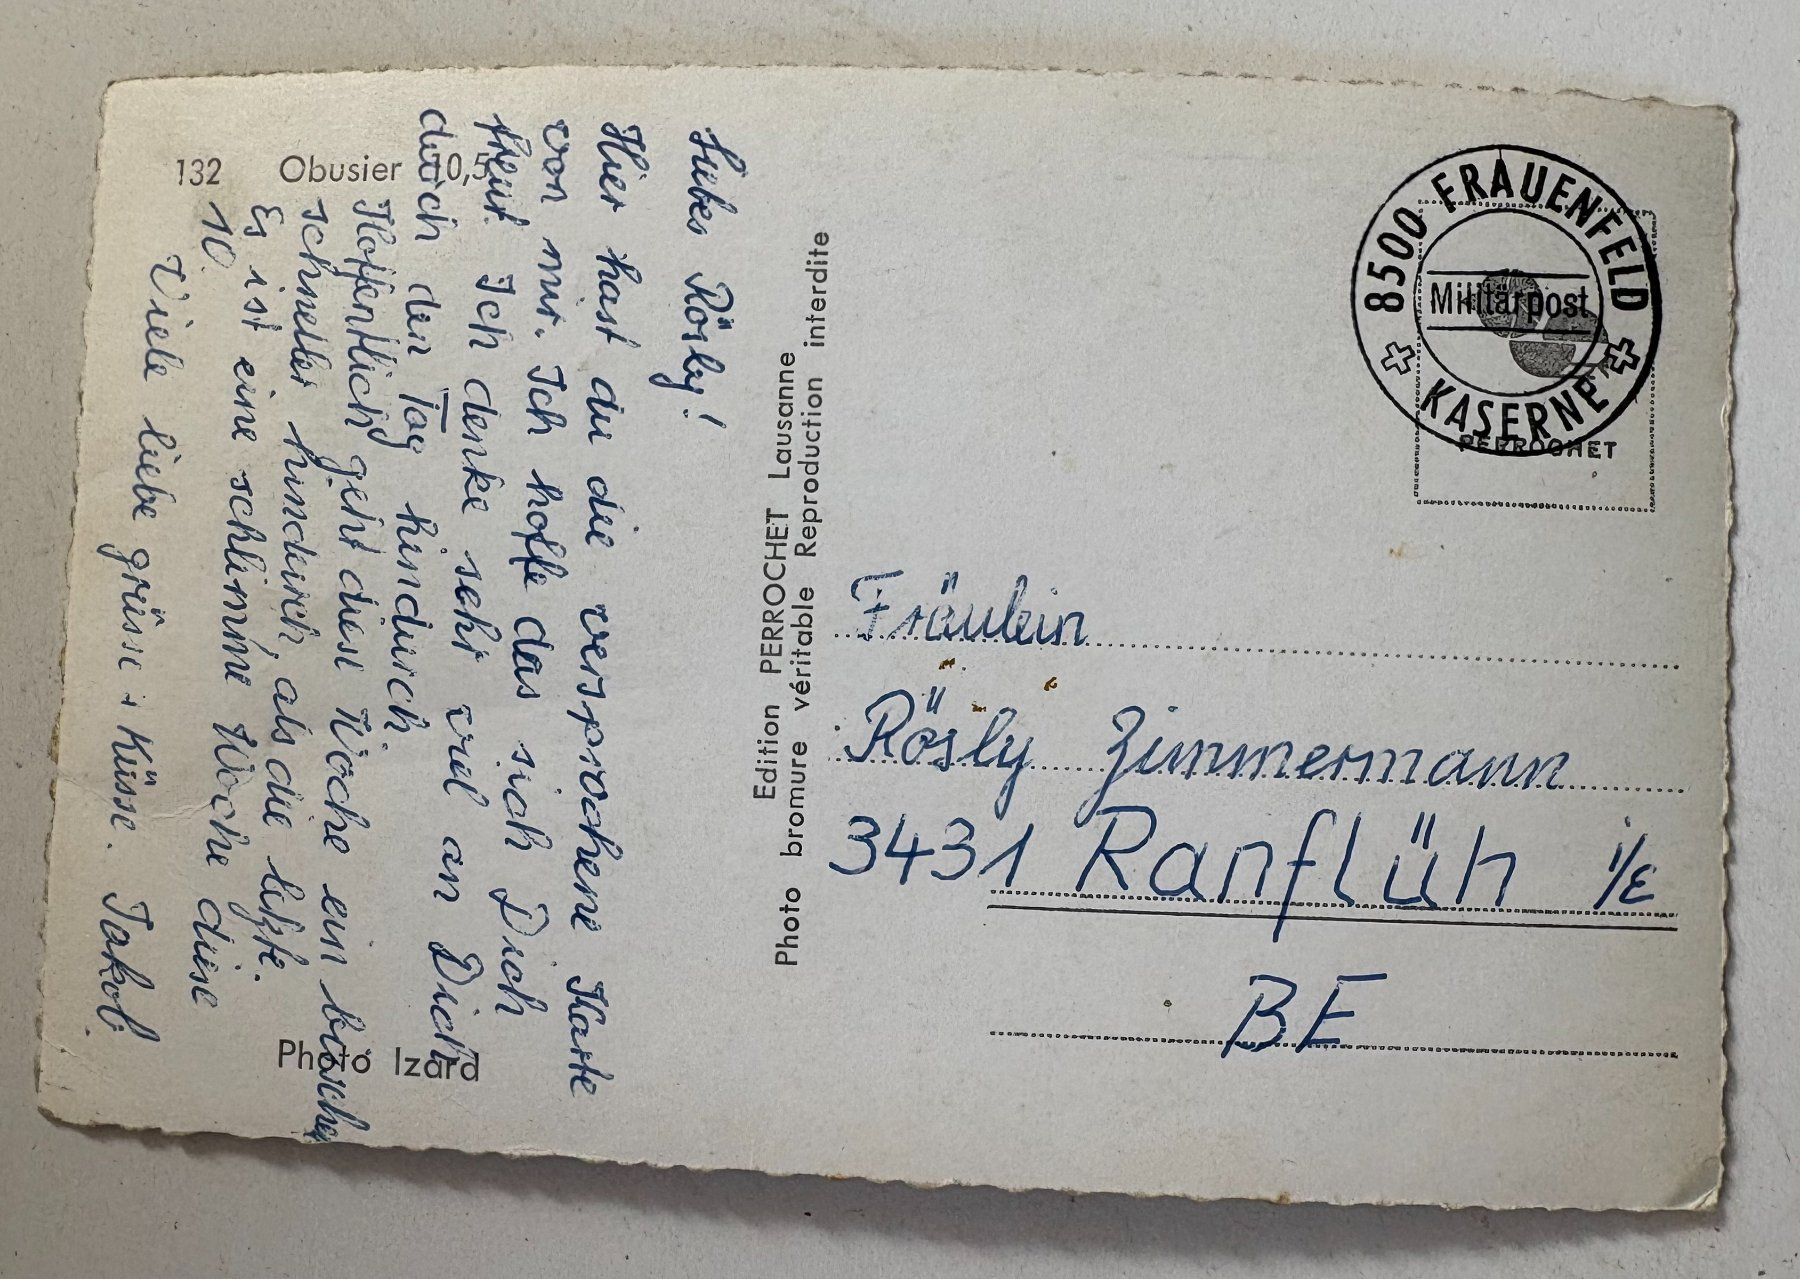 132 Obusier 10,5
Liebes Rösly!
Hier hast du die versprochene Karte
von mir. Ich hoffe das sich Dich
freut. Ich denke sehr viel an Dich
durch den Tag hindurch
Hoffentlich geht diese Woche ein bisschen
schneller hindurch, als die letzte.
Es ist eine schlimme Woche diese
10.
Viele liebe grüsse + Küsse. Jakob.
Photo Izard
Edition PERROCHET Lausanne
Photo bromure véritable Reproduction interdite
8500 FRAUENFELD
Militärpost
KASERNE
PERROCHET
Fräulein
Rösly Zimmermann
3431 Ranflüh i/E
BE